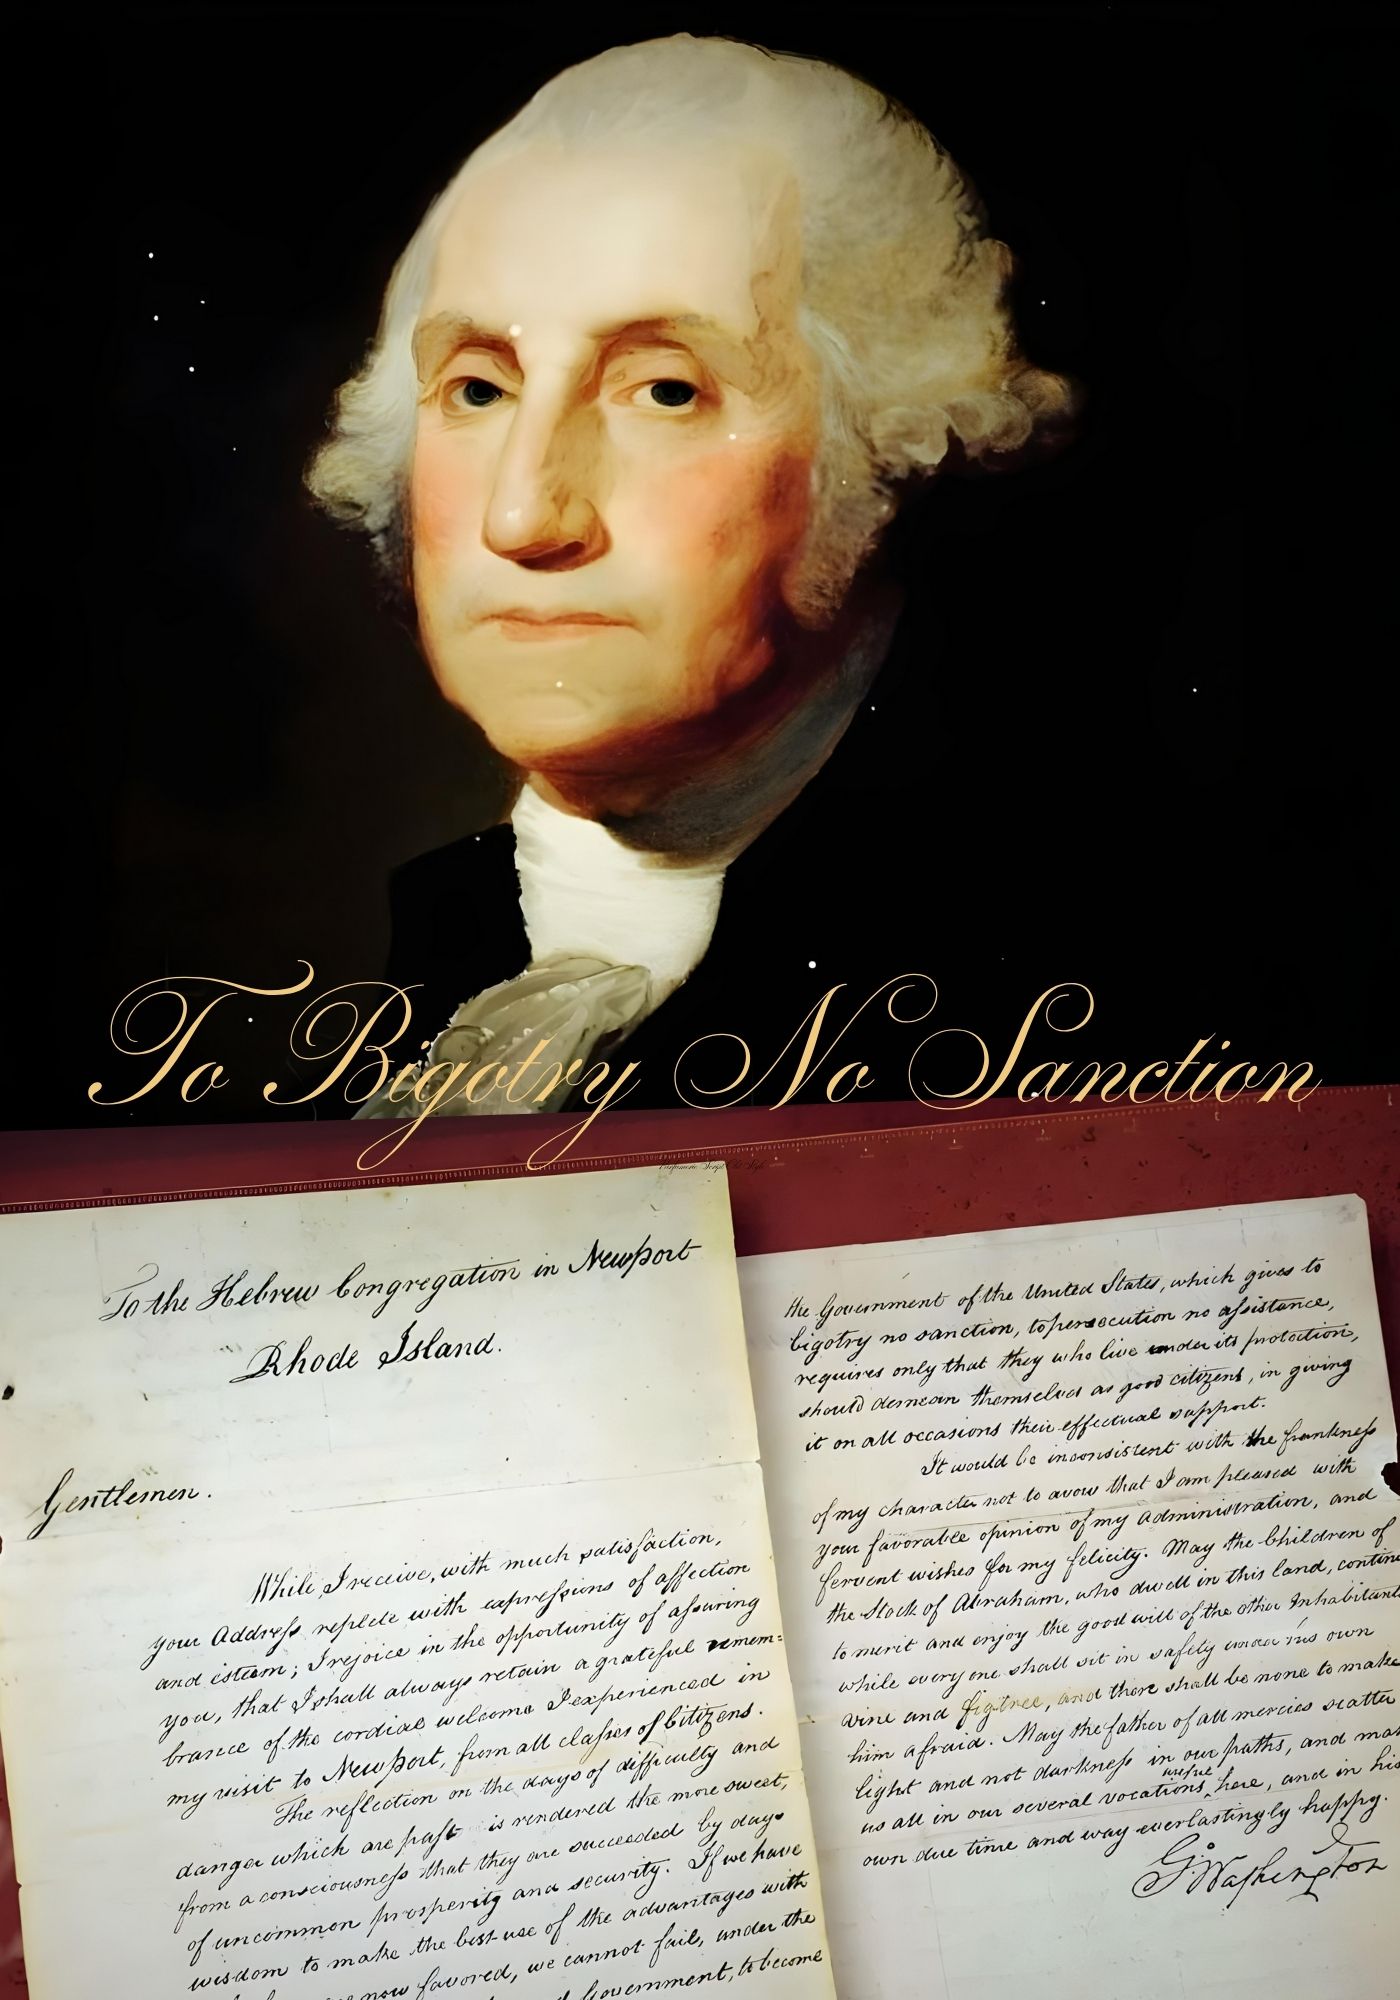 To Bigotry No Sanction
To the Hebrew Congregation in Newport
Rhode Island.
Gentlemen.
While, I receive, with much satisfaction,
your Address replete with expressions of affection
and esteem; I rejoice in the opportunity of assuring
you, that I shall always retain a grateful remem=
brance of the cordial welcome I experienced in
my visit to Newport, from all classes of Citizens.
The reflection on the days of difficulty and
danger which are past is rendered the more sweet,
from a consciousness that they are succeeded by days
of uncommon prosperity and security. If we have
wisdom to make the best use of the advantages with
now favored, we cannot fail, under the
Government, to become
the Government of the United States, which gives to
bigotry no sanction, to persecution no assistance,
requires only that they who live under its protection,
should demean themselves as good citizens, in giving
it on all occasions their effectual support.
It would be inconsistent with the frankness
of my character not to avow that I am pleased with
your favorable opinion of my Administration, and
fervent wishes for my felicity. May the Children of
the Stock of Abraham, who dwell in this land, contin
to merit and enjoy the good will of the other Inhabitants
while every one shall sit in safety under his own
vine and figtree, and there shall be none to make
him afraid. May the father of all mercies scatter
light and not darkness in our paths, and mak
us all in our several vocations useful here, and in his
own due time and way everlastingly happy.
G. Washington